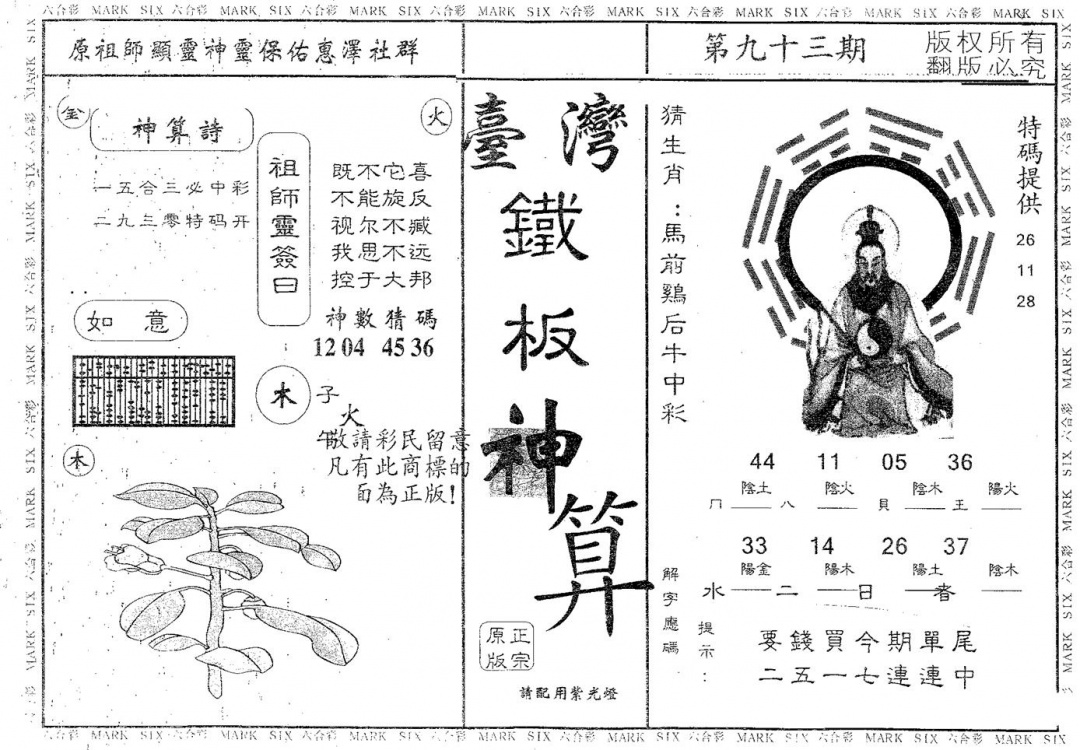 六合彩 MARK SIX 六合彩 MARK SIX 六合彩 MARK SIX 六合彩 MARK SIX 六合彩 MARK SIX 六合彩 MARK SIX 六合彩 MARK SIX 六合彩 MARK SIX
原祖師顯靈神靈保佑惠澤社群
第九十三期
版权所有
翻版必究
金
神算詩
一五合三必中彩
二九三零特码开
火
祖師靈簽曰
既不它喜
不能旋反
视尔不臧
我思不远
控于大邦
神數猜碼
12 04 45 36
如意
木
子
火
午
敬請彩民留意
凡有此商標的
面為正版!
木
臺灣
鐵板神算
正宗
原版
請配用紫光燈
猜生肖：馬前鷄后牛中彩
特碼提供
26
11
28
44 11 05 36
陰土 陰火 陰木 陽火
冂 八 貝 王
33 14 26 37
陽金 陽木 陽土 陰木
水 二 日
解字應碼
提示：
要錢買今期單尾
二五一七連連中
六合彩 MARK SIX 六合彩 MARK SIX 六合彩 MARK SIX 六合彩 MARK SIX 六合彩 MARK SIX 六合彩 MARK SIX 六合彩 MARK SIX 六合彩 MARK SIX